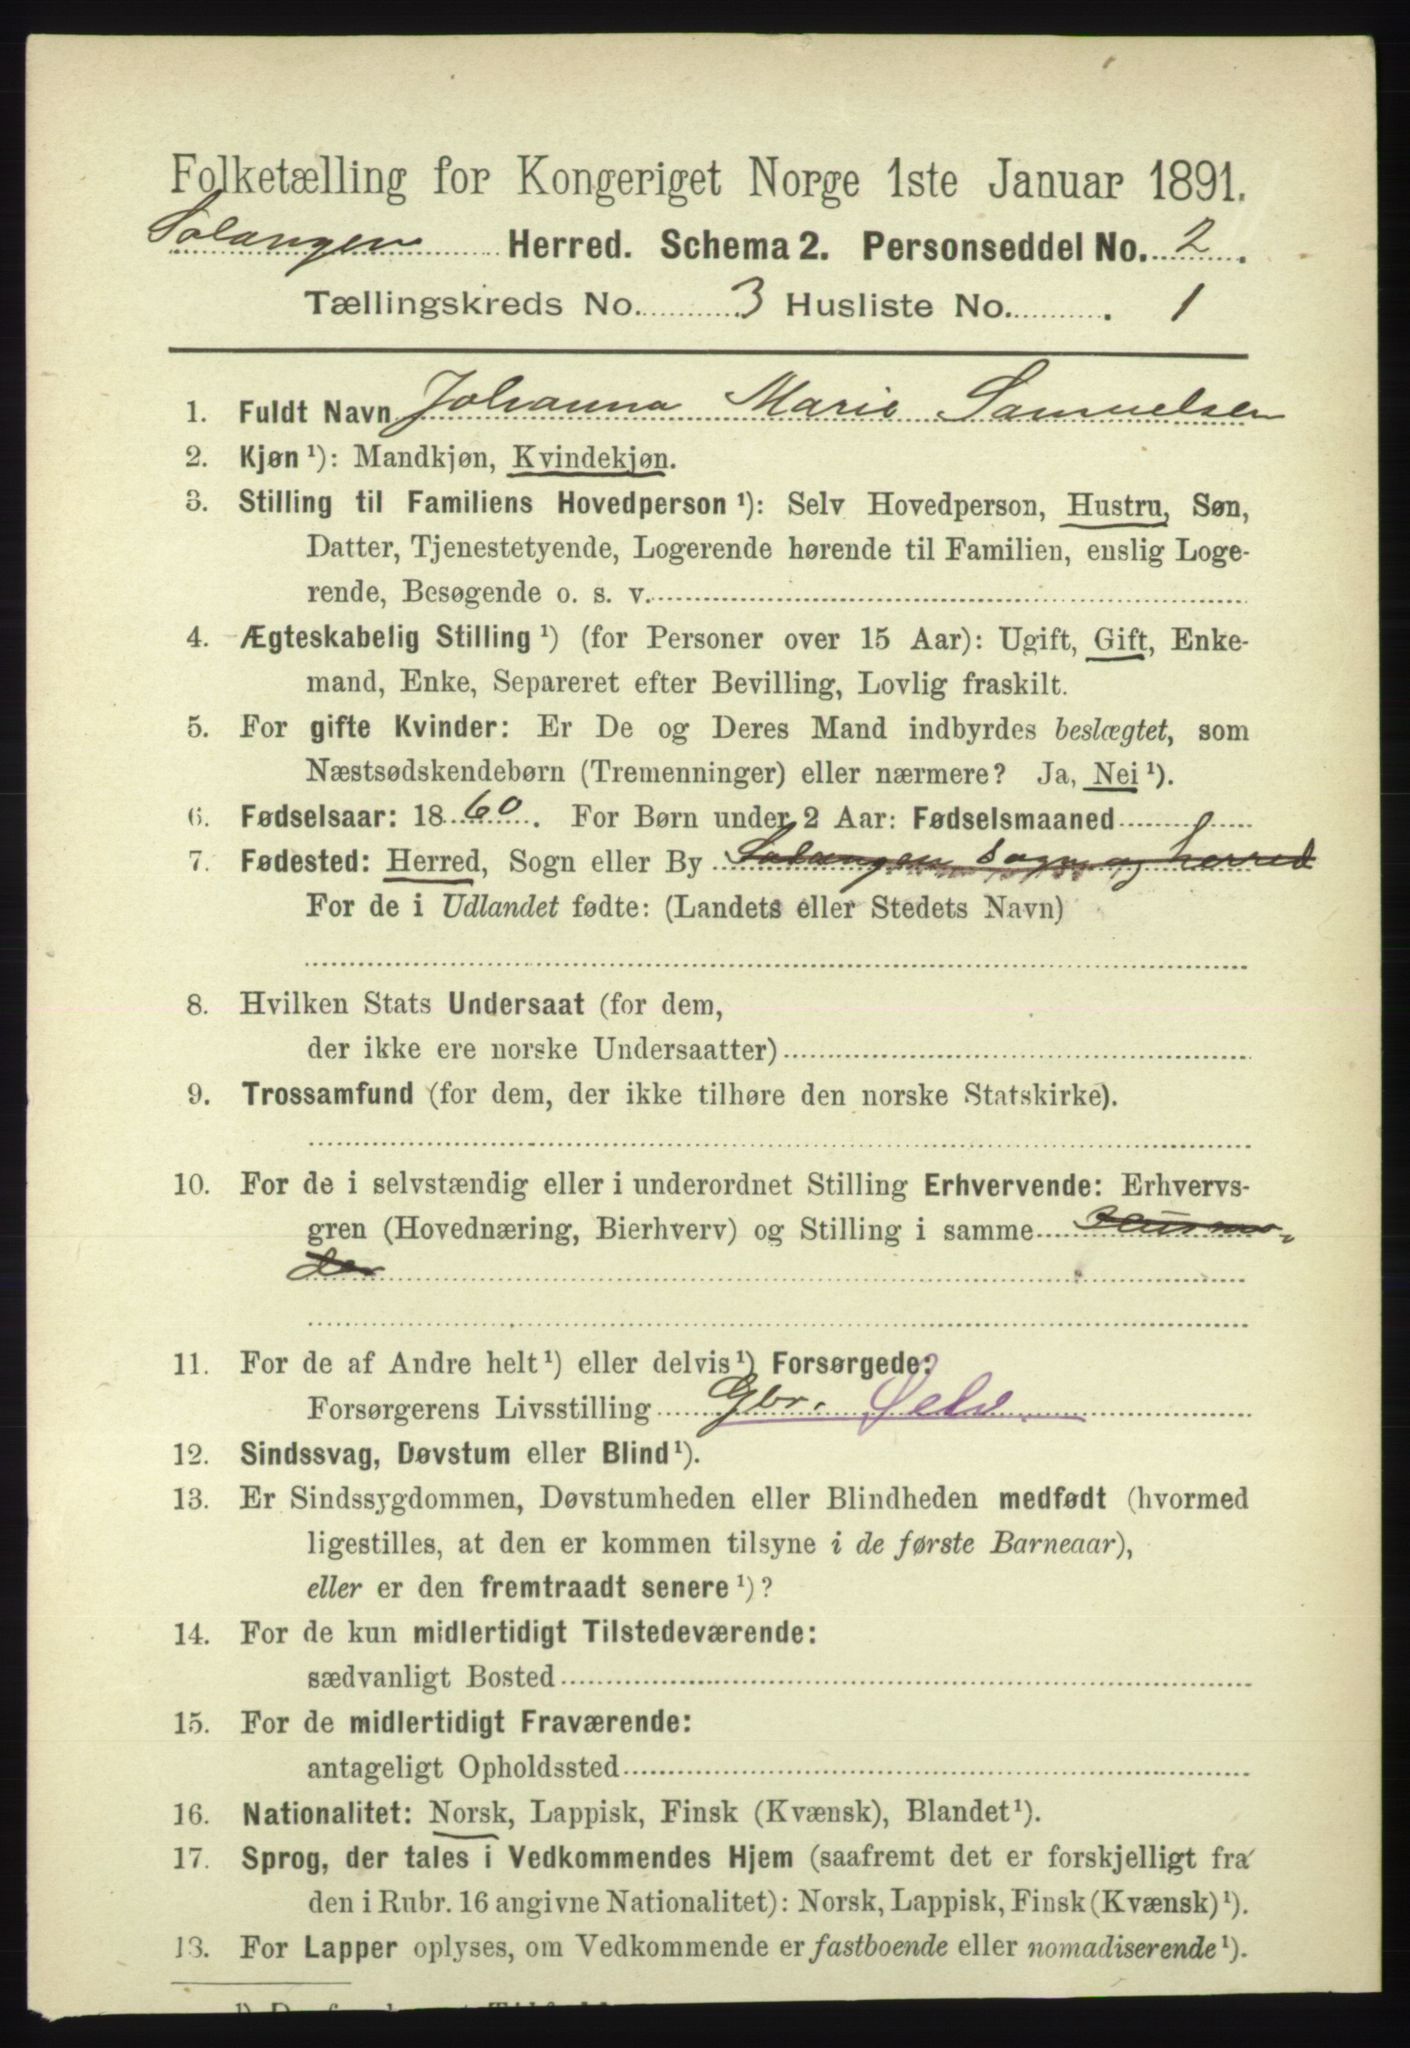 Folketælling for Kongeriget Norge 1ste Januar 1891.
Salangen Herred. Schema 2. Personseddel No. 2.
Tællingskreds No. 3 Husliste No. 1
1. Fuldt Navn Johanna Marie Samuelsen
2. Kjøn ¹): Mandkjøn, Kvindekjøn.
3. Stilling til Familiens Hovedperson ¹): Selv Hovedperson, Hustru, Søn,
Datter, Tjenestetyende, Logerende hørende til Familien, enslig Loge-
rende, Besøgende o. s. v.
4. Ægteskabelig Stilling ¹) (for Personer over 15 Aar): Ugift, Gift, Enke-
mand, Enke, Separeret efter Bevilling, Lovlig fraskilt.
5. For gifte Kvinder: Er De og Deres Mand indbyrdes beslægtet, som
Næstsødskendebørn (Tremenninger) eller nærmere? Ja, Nei ¹).
6. Fødselsaar: 1860. For Børn under 2 Aar: Fødselsmaaned
7. Fødested: Herred, Sogn eller By Salangen Sogn og herred
For de i Udlandet fødte: (Landets eller Stedets Navn)
8. Hvilken Stats Undersaat (for dem,
der ikke ere norske Undersaatter)
9. Trossamfund (for dem, der ikke tilhøre den norske Statskirke).
10. For de i selvstændig eller i underordnet Stilling Erhvervende: Erhvervs-
gren (Hovednæring, Bierhverv) og Stilling i samme Husmo-
der
11. For de af Andre helt ¹) eller delvis ¹) Forsørgede:
Forsørgerens Livsstilling Gbr. Selv.
12. Sindssvag, Døvstum eller Blind ¹).
13. Er Sindssygdommen, Døvstumheden eller Blindheden medfødt (hvormed
ligestilles, at den er kommen tilsyne i de første Barneaar),
eller er den fremtraadt senere ¹)?
14. For de kun midlertidigt Tilstedeværende:
sædvanligt Bosted
15. For de midlertidigt Fraværende:
antageligt Opholdssted
16. Nationalitet: Norsk, Lappisk, Finsk (Kvænsk), Blandet ¹).
17. Sprog, der tales i Vedkommendes Hjem (saafremt det er forskjelligt fra
den i Rubr. 16 angivne Nationalitet): Norsk, Lappisk, Finsk (Kvænsk) ¹).
18. For Lapper oplyses, om Vedkommende er fastboende eller nomadiserende ¹).